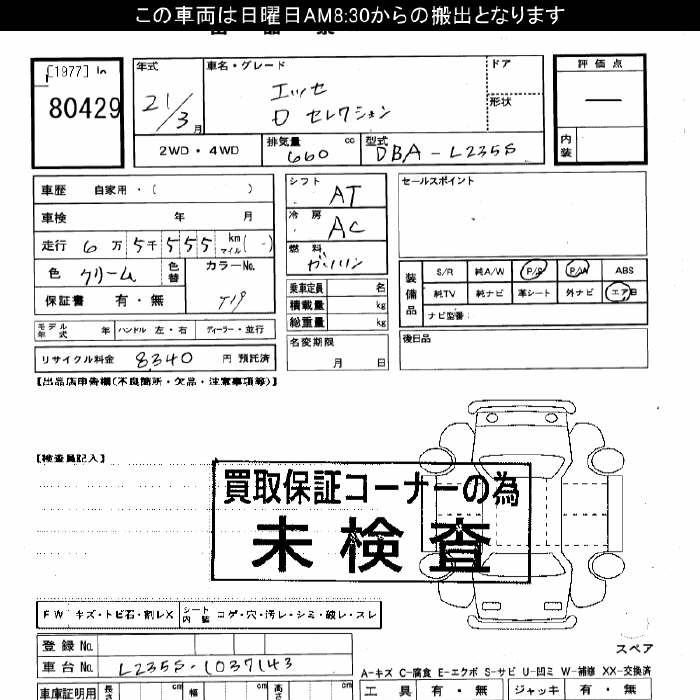 この車両は日曜日AM8:30からの搬出となります
[1977] In
80429
年式
21/3月
車名・グレード
エッセ
D セレクション
ドア
形状
評価点
—
内装
2WD・4WD
排気量 660 cc
型式 DBA-L235S
車歴 自家用・( )
車検 年 月
走行 6万5千555 km マイル (-)
色 クリーム 色替
カラーNo. T19
保証書 有・無
シフト AT
冷房 AC
燃料 ガソリン
乗車定員 名
積載量 kg
総重量 kg
名変期限 月 日
セールスポイント
装備品
S/R 純A/W P/S P/W ABS
純TV 純ナビ 革シート 外ナビ エアB
ナビ型番:
後日品
モデル年式 年 ハンドル 左・右 ディーラー・並行
リサイクル料金 8340 円 預託済
【出品店申告欄(不良箇所・欠品・注意事項等)】
【検査員記入】
買取保証コーナーの為
未検査
FW キズ・トビ石・割レX
シート内装 コゲ・穴・汚レ・シミ・破レ・スレ
登録No.
車台No. L235S-1037143
スペア
A-キズ C-腐食 E-エクボ S-サビ U-凹ミ W-補修 XX-交換済
車庫証明用 長さ cm 幅 cm 高さ cm
工具 有・無 ジャッキ 有・無